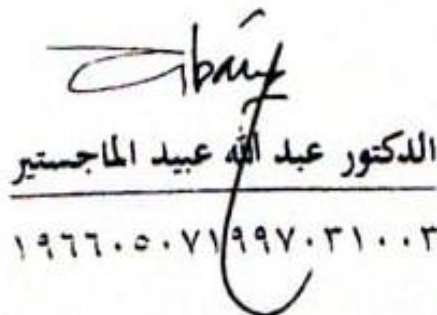 الدكتور عبد الله عبيد الماجستير
١٩٦٦٠٥٠٧١٩٩٧٠٣١٠٠٣